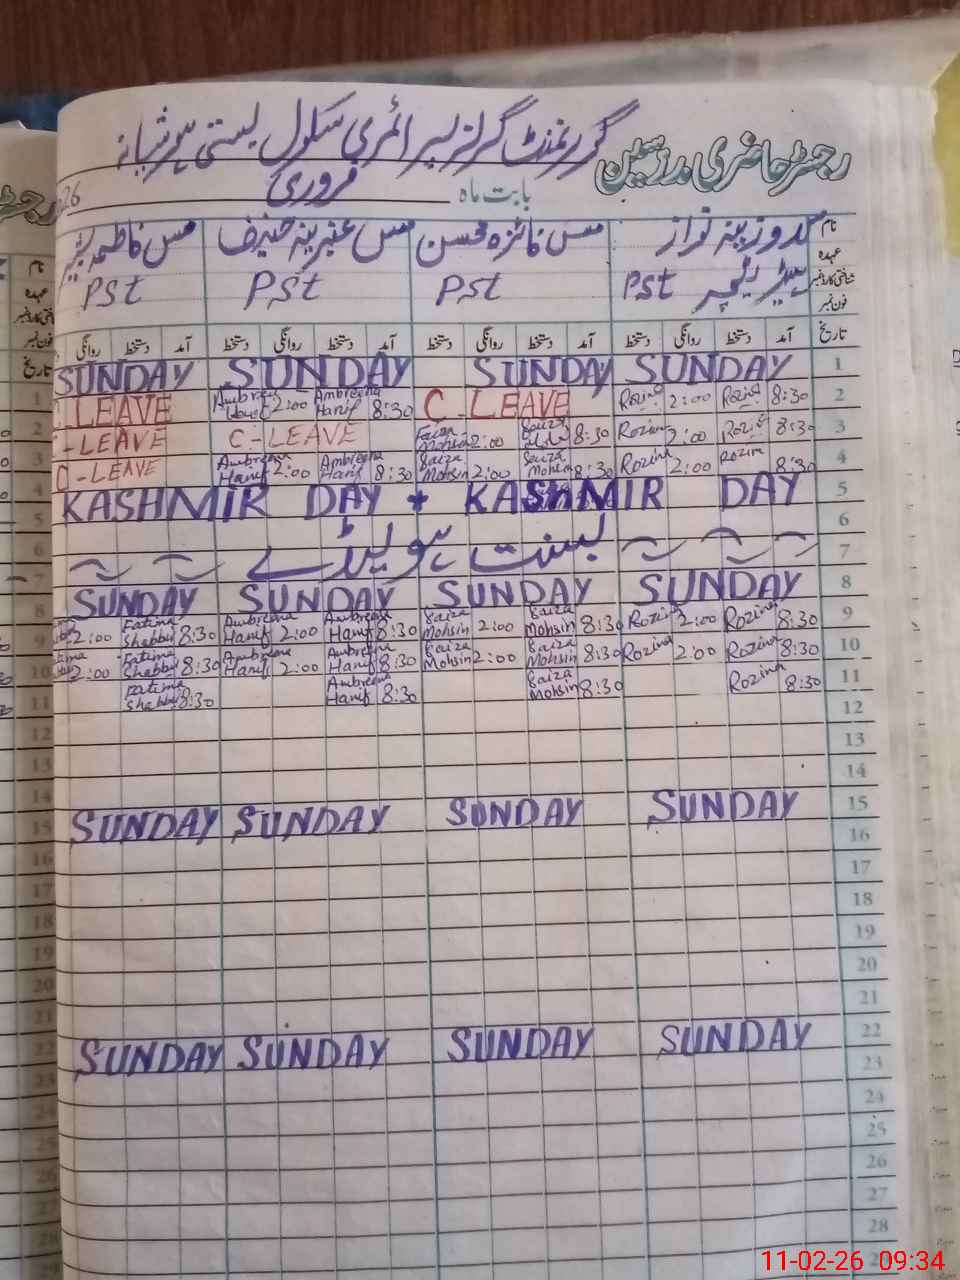 گورنمنٹ گرلز پرائمری سکول بستی
رجسٹر حاضری مدرسین
بابت ماہ فروری 26
نام روزینہ نواز مس فائزہ محسن مس عنبرینہ حنیف مس فاطمہ
عہدہ ہیڈ ٹیچر Pst Pst Pst Pst
شناختی کارڈ نمبر
فون نمبر
تاریخ آمد دستخط روانگی دستخط آمد دستخط روانگی دستخط آمد دستخط روانگی دستخط آمد دستخط روانگی
SUNDAY SUNDAY SUNDAY SUNDAY 1
C-LEAVE Ambreena Hanif 2:00 Ambreena Hanif 8:30 C-LEAVE Rozina 2:00 Rozina 8:30 2
C-LEAVE C-LEAVE Faiza Mohsin 2:00 Faiza 8:30 Rozina 2:00 Rozina 8:30 3
C-LEAVE Ambreena Hanif 2:00 Ambreena Hanif 8:30 Faiza Mohsin 2:00 Faiza Mohsin 8:30 Rozina 2:00 Rozina 8:30 4
KASHMIR DAY * KASHMIR DAY 5
6
بسنت ہولیڈے 7
SUNDAY SUNDAY SUNDAY SUNDAY 8
2:00 Fatima Shabbir 8:30 Ambreena Hanif 2:00 Ambreena Hanif 8:30 Faiza Mohsin 2:00 Faiza Mohsin 8:30 Rozina 2:00 Rozina 8:30 9
2:00 Fatima Shabbir 8:30 Ambreena Hanif 2:00 Ambreena Hanif 8:30 Faiza Mohsin 2:00 Faiza Mohsin 8:30 Rozina 2:00 Rozina 8:30 10
Fatima Shabbir 8:30 Ambreena Hanif 8:30 Faiza Mohsin 8:30 Rozina 8:30 11
12
13
14
SUNDAY SUNDAY SUNDAY SUNDAY 15
16
17
18
19
20
21
SUNDAY SUNDAY SUNDAY SUNDAY 22
23
24
25
26
27
28
11-02-26 09:34